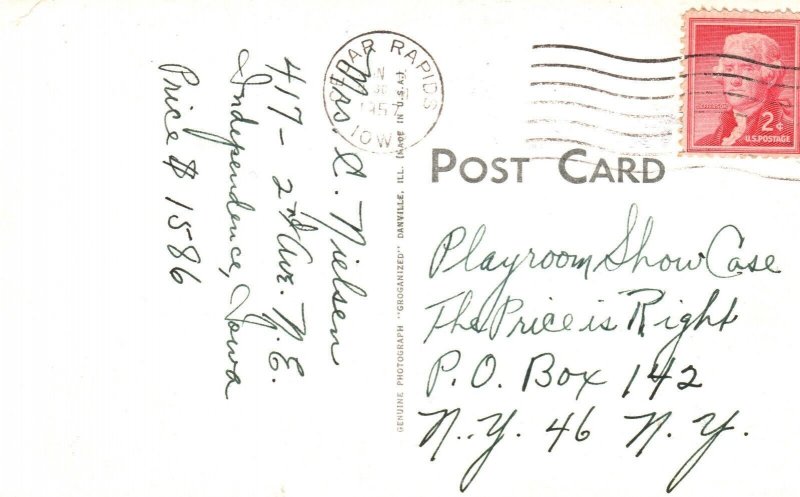 Mrs. C. Nielsen
417 - 2nd Ave. N.E.
Independence, Iowa
Price $ 1586
GENUINE PHOTOGRAPH "GROGANIZED" DANVILLE, ILL. (MADE IN U.S.A.)
CEDAR RAPIDS
1957
IOWA
JEFFERSON
2¢
U.S. POSTAGE
POST CARD
Playroom Show Case
The Price is Right
P.O. Box 142
N.Y. 46 N.Y.